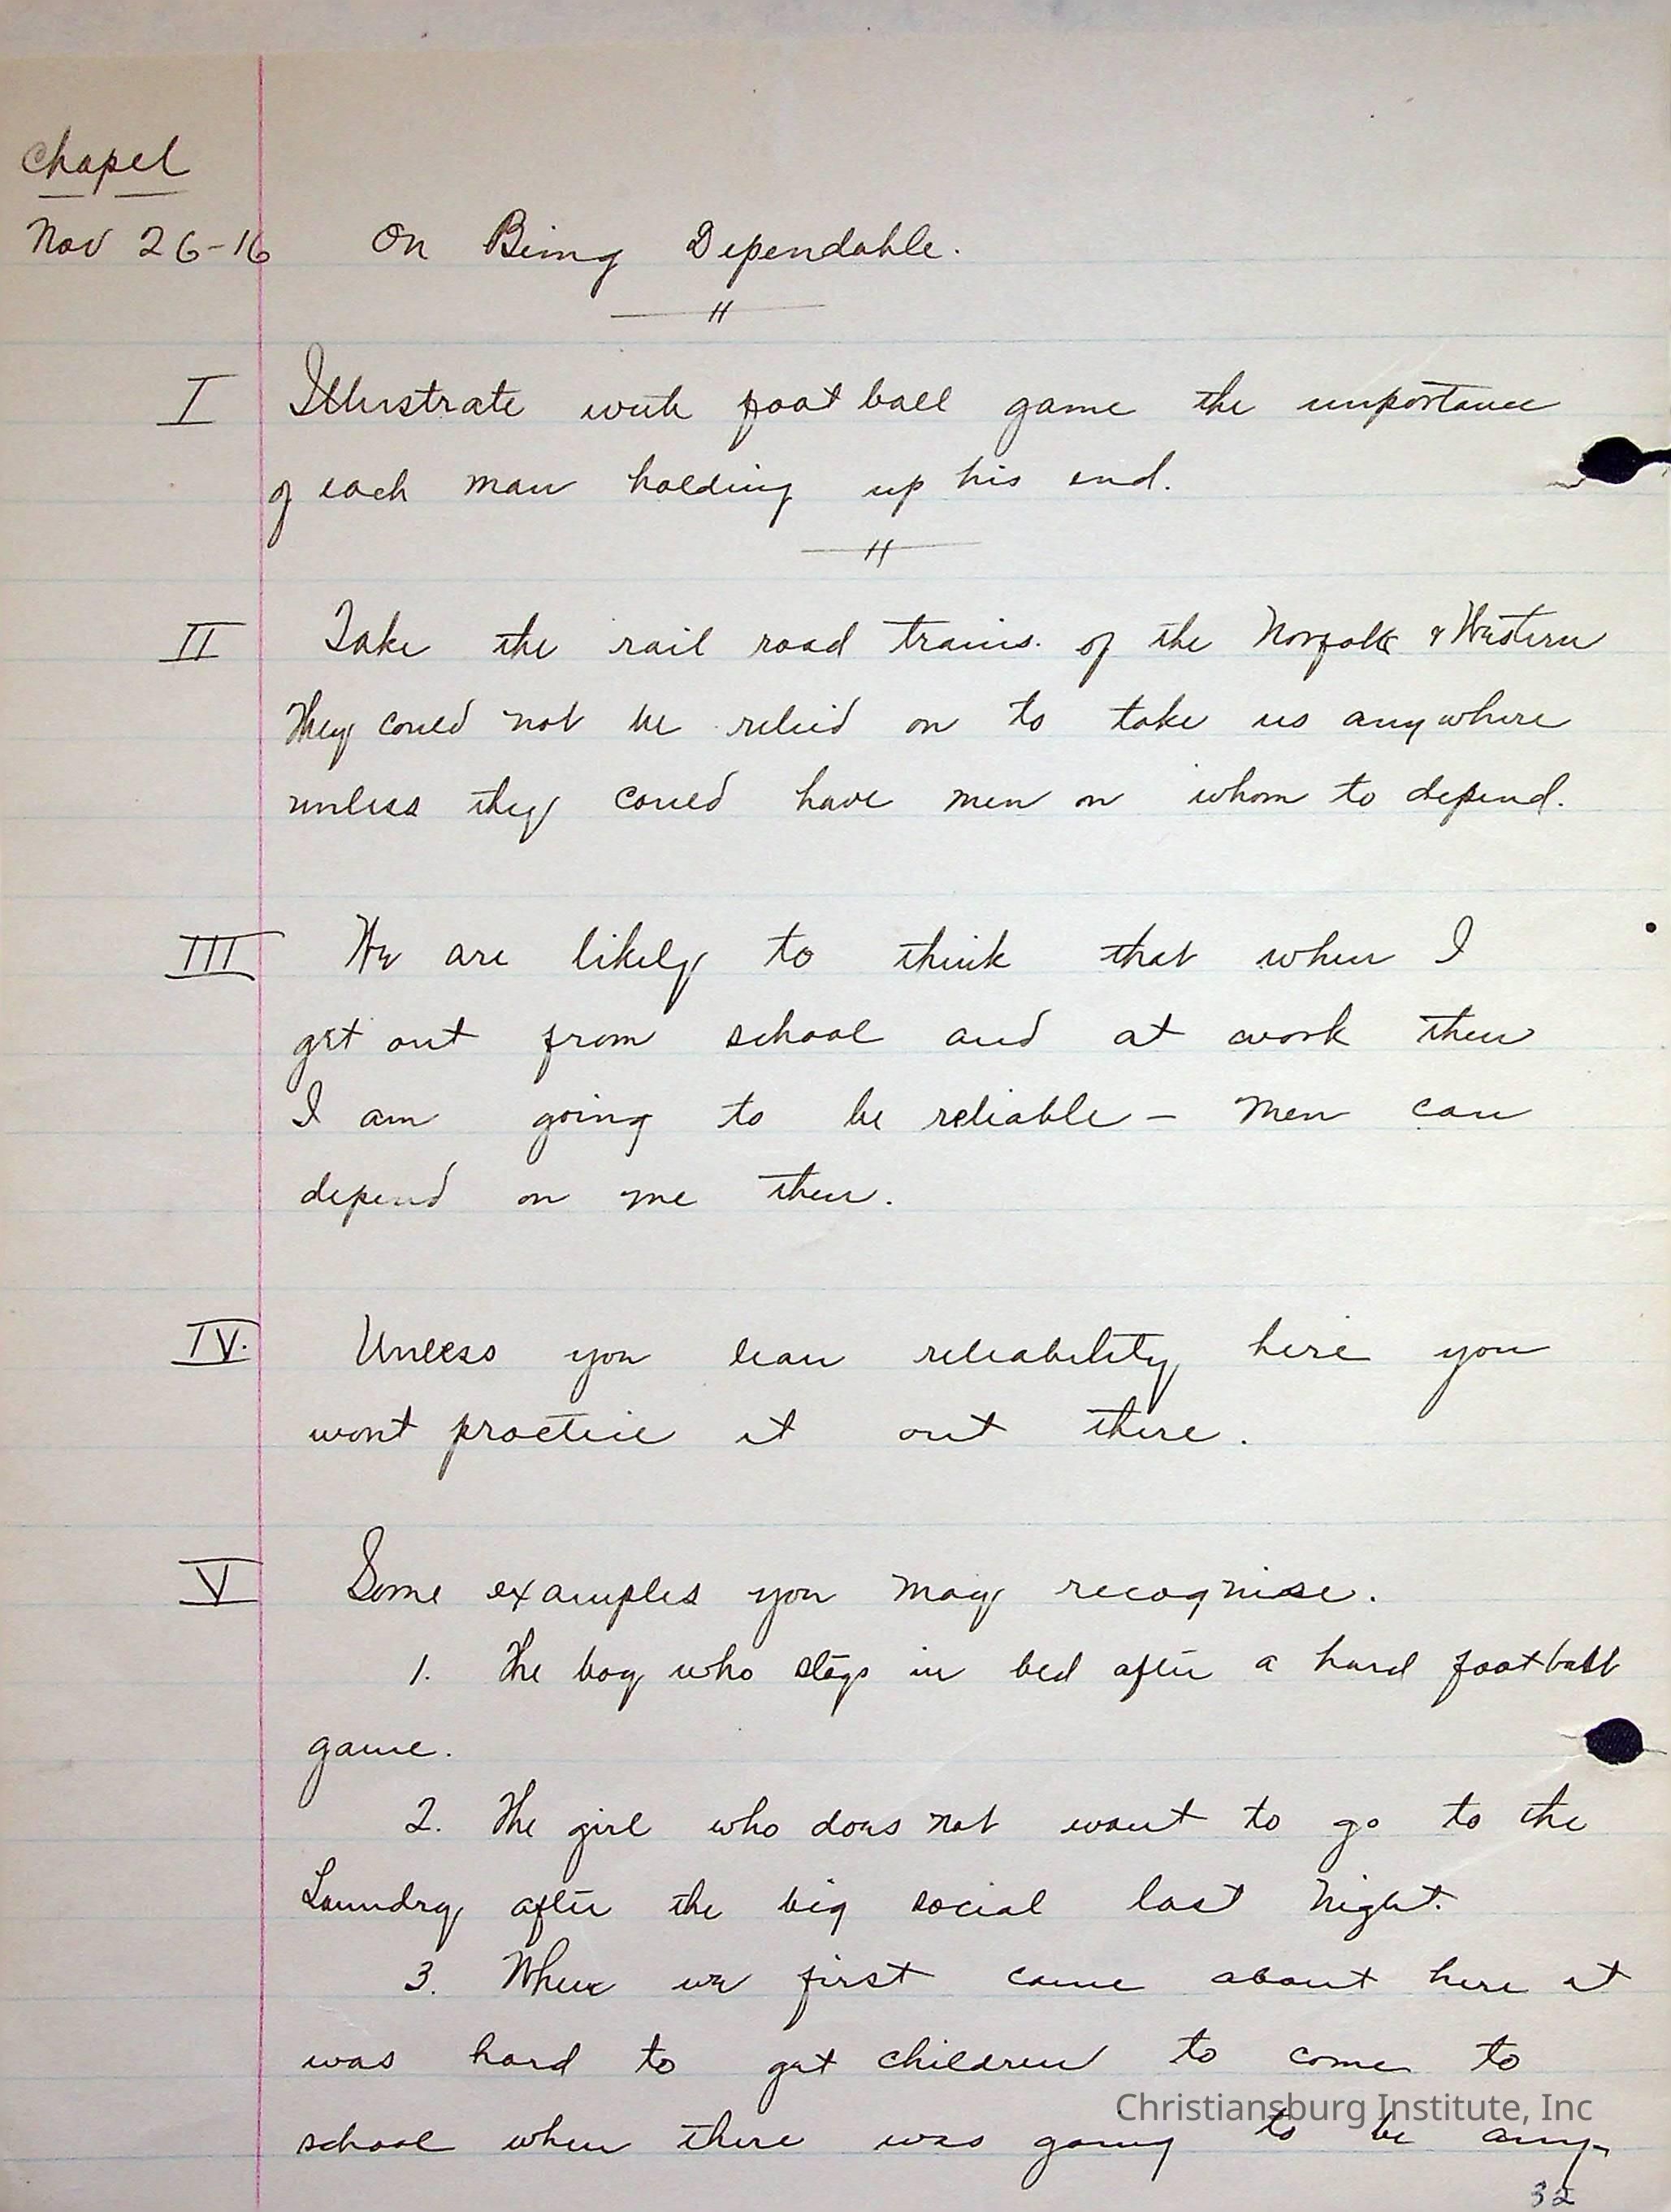 Chapel
Nov 26-16 On Being Dependable.
I Illustrate with foot ball game the importance
of each man holding up his end.
II Take the rail road trains. of the Norfolk & Western
They could not be relied on to take us anywhere
unless they could have men on whom to depend.
III We are likely to think that when I
get out from school and at work then
I am going to be reliable – Men can
depend on me then.
IV. Unless you lean reliability here you
wont practice it out there.
V Some examples you may recognise.
1. The boy who stays in bed after a hard football
game.
2. The girl who does not want to go to the
Laundry after the big social last night.
3. When we first came about here it
was hard to get children to come to
Christiansburg Institute, Inc
school when there was going to be any-
32